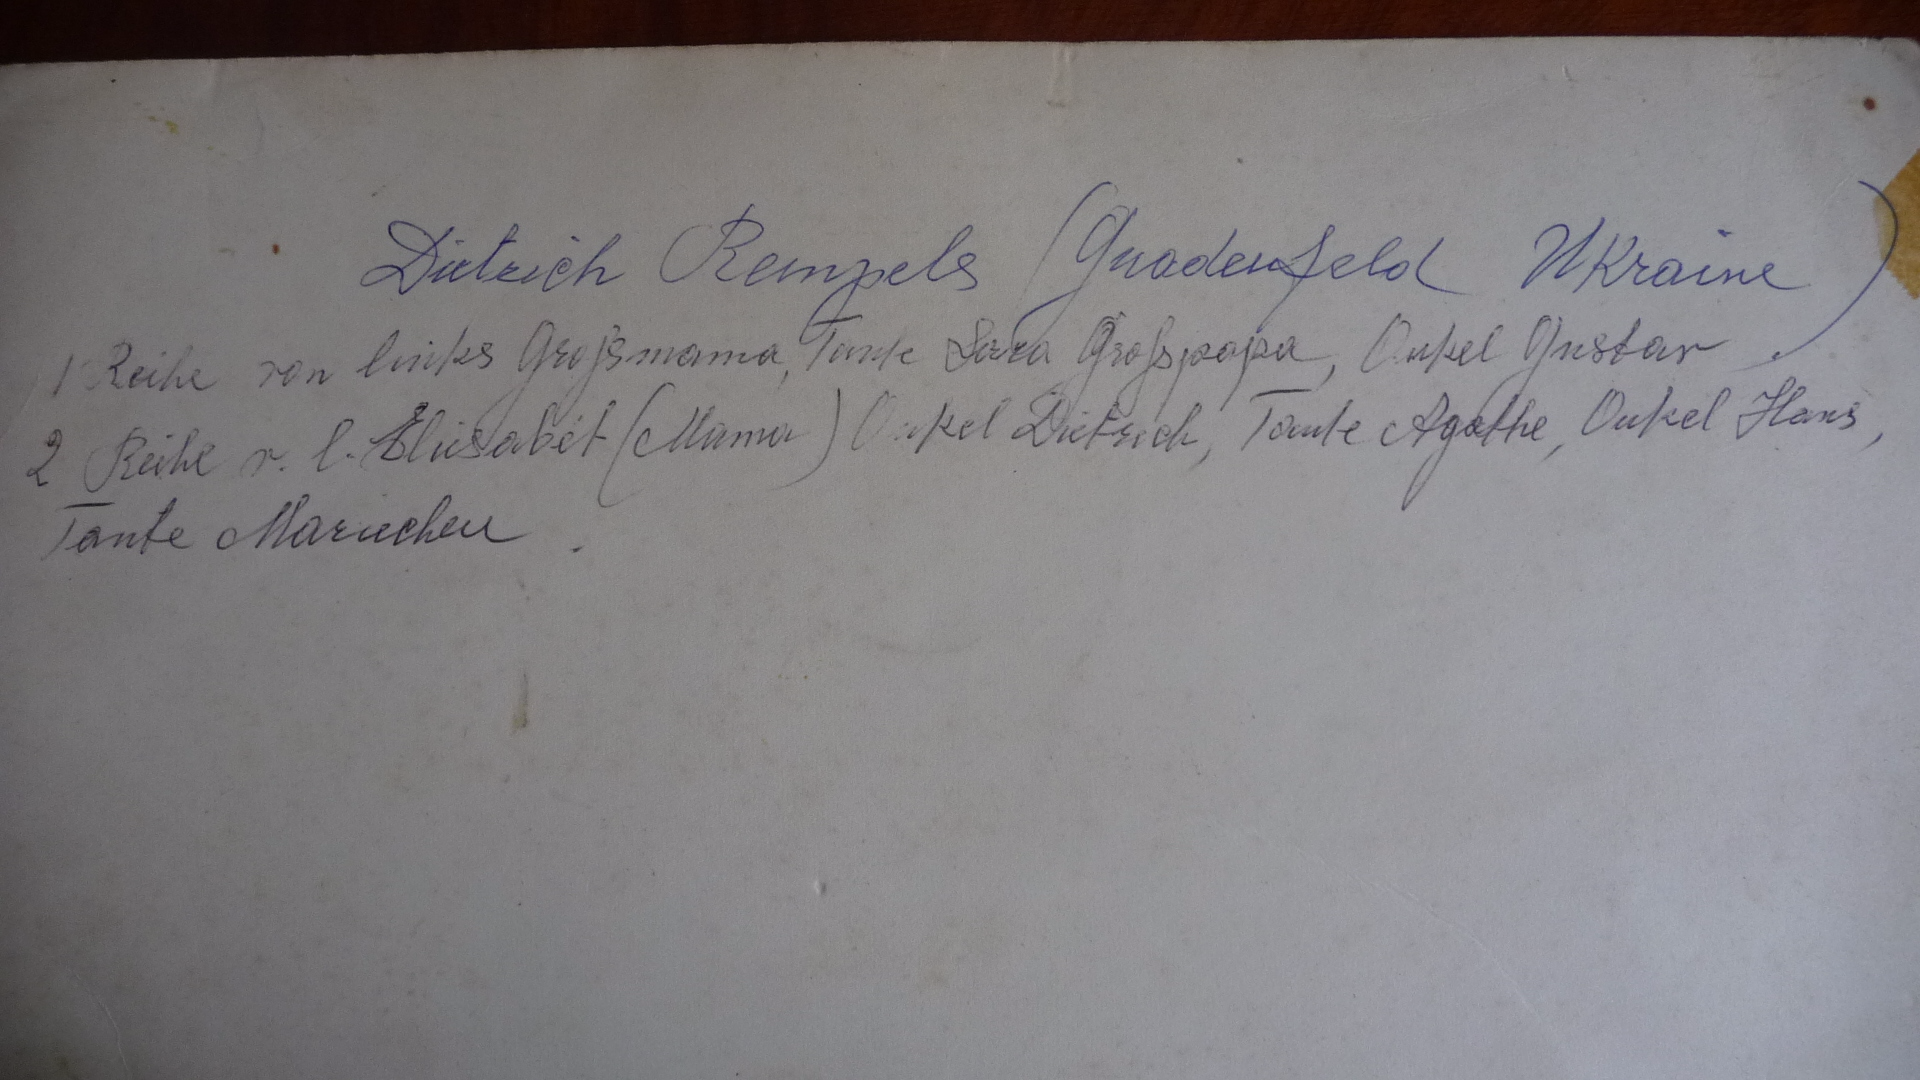 Dietrich Rempels (Gnadenfeld Ukraine)
1 Reihe von links Großmama, Tante Sara Großpapa, Onkel Gustav.
2 Reihe v. l. Elisabet (Mama) Onkel Dietrich, Tante Agathe, Onkel Hans,
Tante Mariechen.